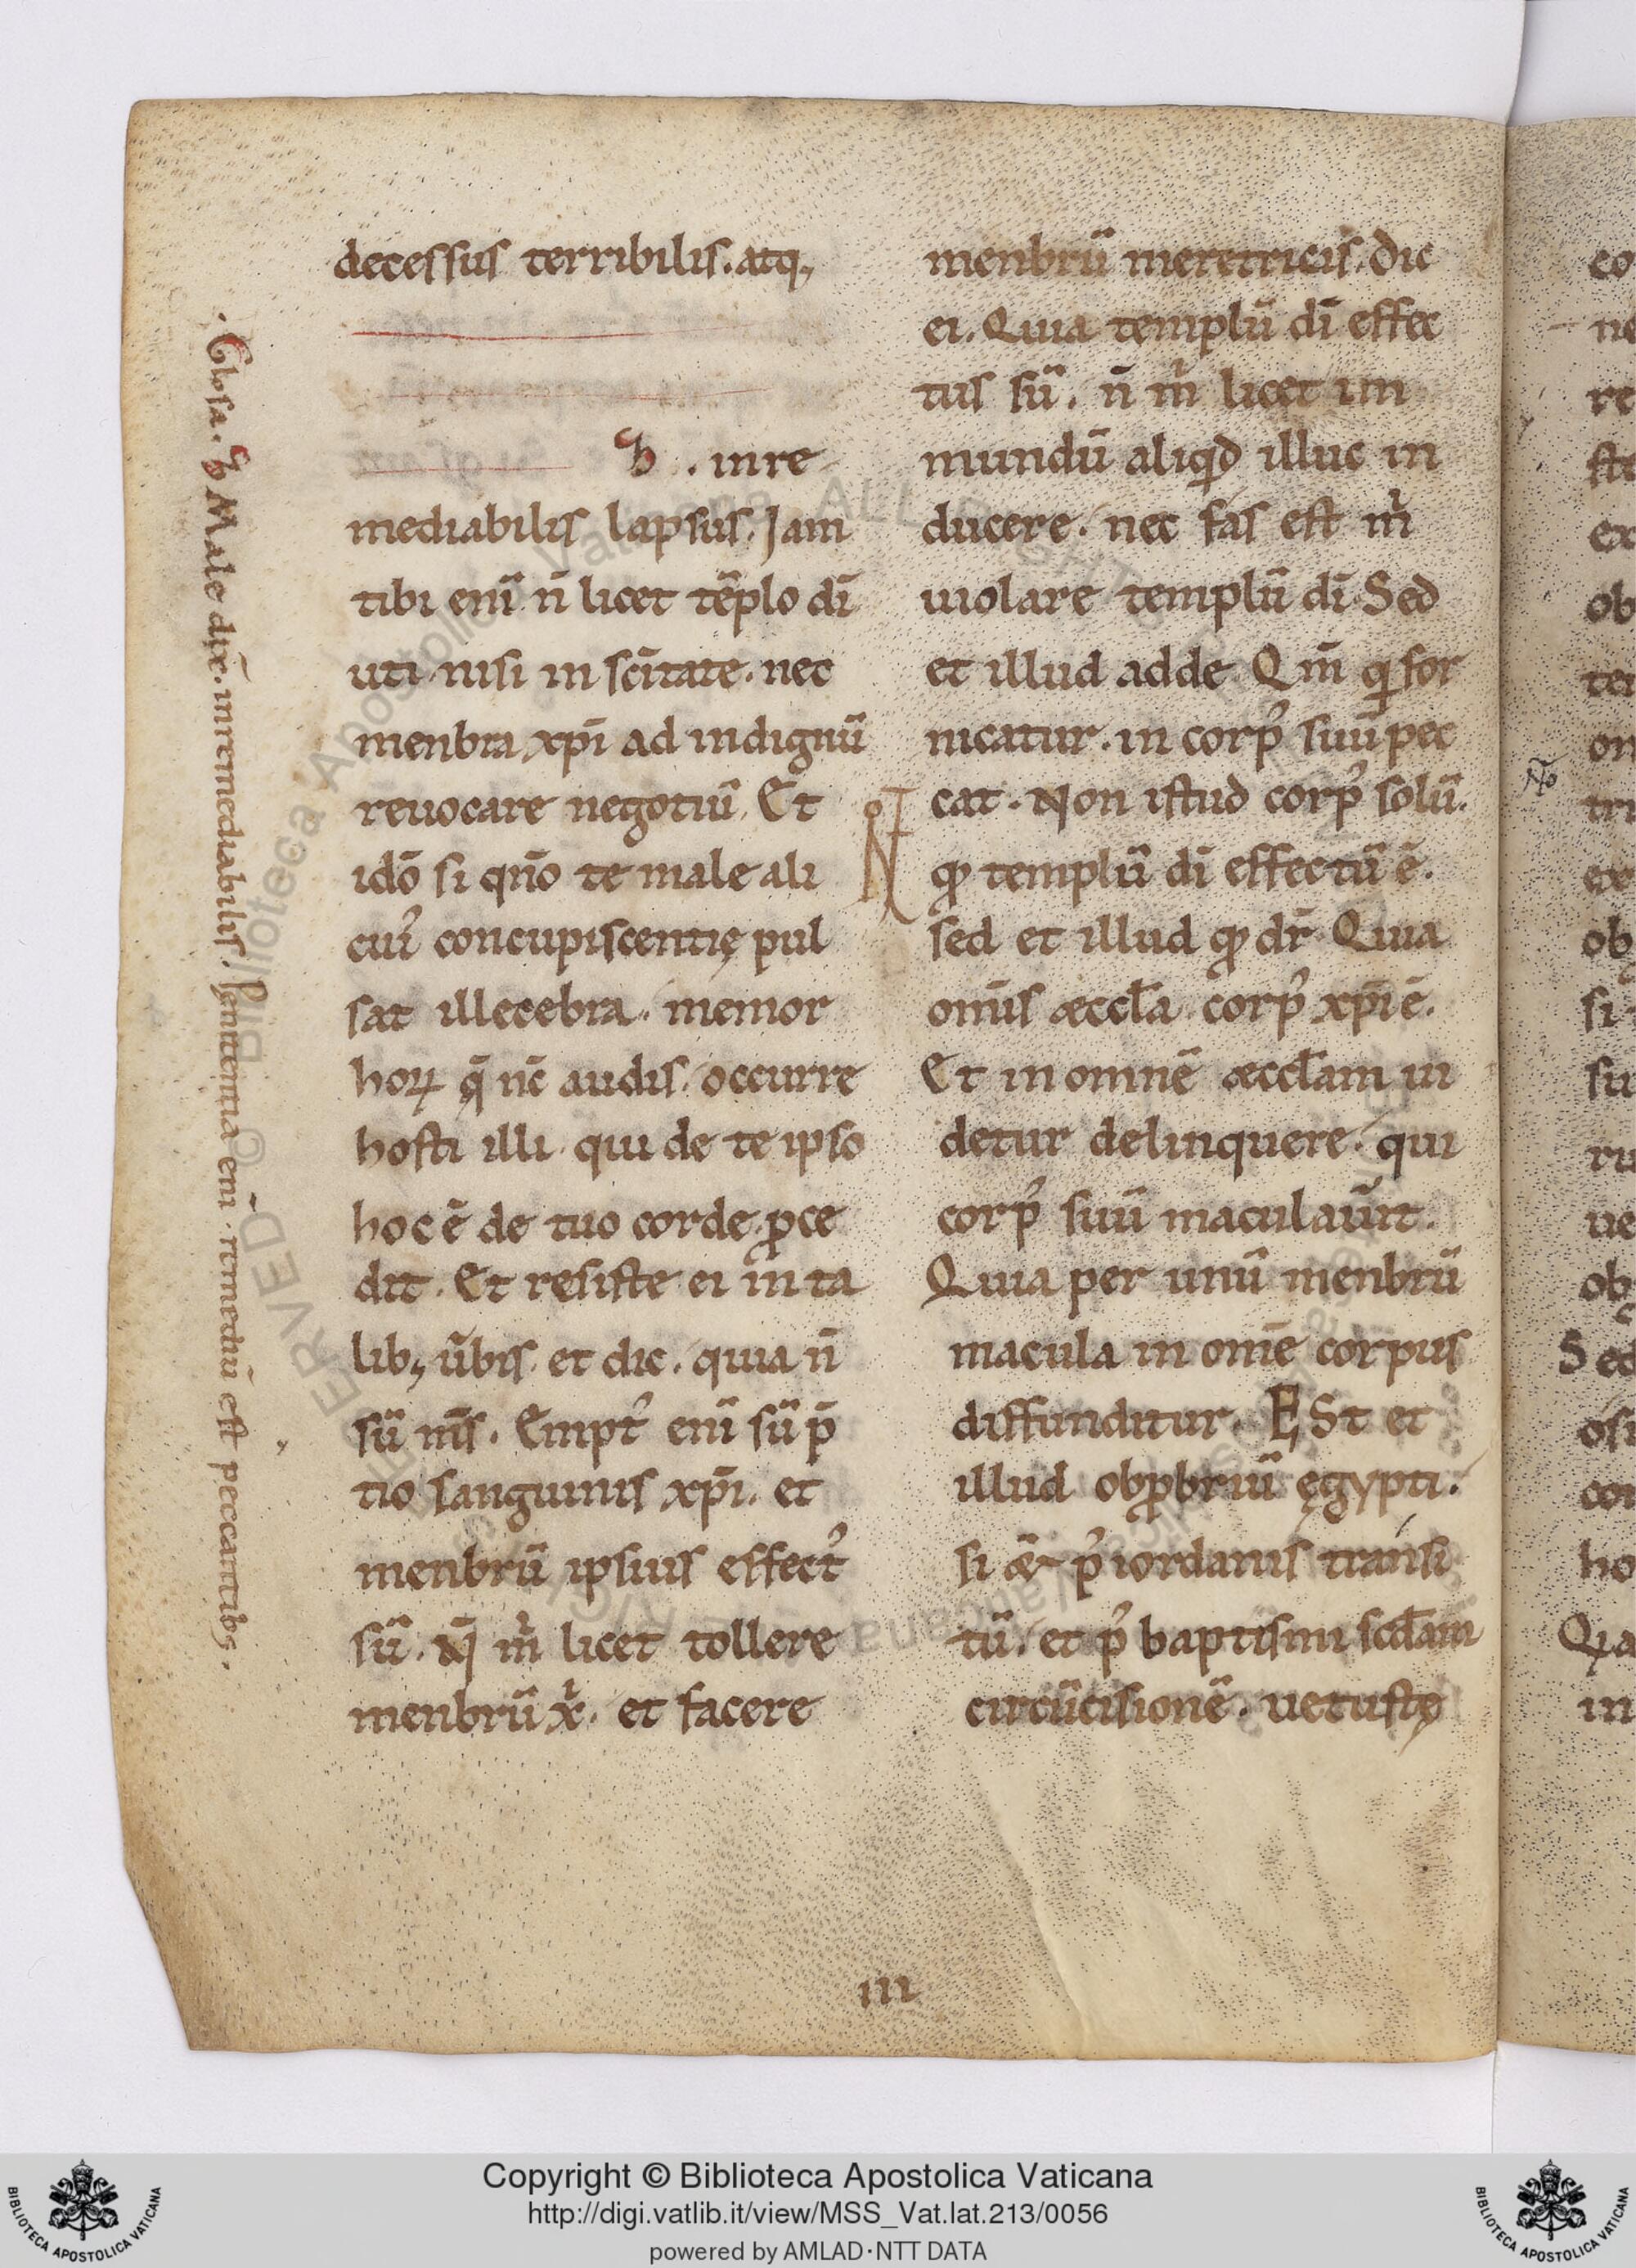 decessus terribilis. atq;
. inre
mediabilis lapsus. Jam
tibi eni͂ n̄ licet te͂plo di̅
uti. nisi in sc̅itate. nec
menbra xp̅i ad indignu͂
reuocare negotiu͂. Et
ido̅ si qn̅o te male ali
cui᾽ concupiscentię pul
sat illecebra. memor
hoꝝ q̄ nc̅ audis. occurre
hosti illi qui de te ipso
hoc ē de tuo corde ꝓce
dit. Et resiste ei in ta
lib; u͂bis. et dic. quia n̄
su͂ m̅s. Empt᾽ eni͂ su͂ p̄
tio sanguinis xp̅i. et
menbru͂ ipsius effect᾽
su͂. m̉ licet tollere
menbru͂ x̉. et facere
menbru͂ meretricis. dic
ei. Quia templu͂ di̅ effec
tus su͂. n̄ m̉ licet im
mundu͂ aliqd illuc in
ducere. nec fas est m̉
uiolare templu͂ di̅. Sed
et illud adde. Qm̅ q̉ for
nicatur. in corp᾽ suu͂ pec
cat. Non istud corp᾽ solu͂.
qđ templu͂ di̅ effectu͂ ē.
sed et illud qđ dr̅. Quia
om̅is æccl̅a corp᾽ xp̅i ē.
Et in omne͂ æccl̅am ui
detur delinquere. qui
corp᾽ suu͂ maculau͂it.
Quia per unu͂ menbru͂
macula in om̅e corpus
diffunditur. ESt et
illud obꝓbriu͂ ęgypti.
si p᾽ iordanis transi
tu͂. et p᾽ baptismi scd̅am
circu͂cisione͂. uetustę
. Glosa. Male dix̅. inremediabilis. penitentia eni̅. remediu̅ est peccantib;.
III
Copyright © Biblioteca Apostolica Vaticana
http://digi.vatlib.it/view/MSS_Vat.lat.213/0056
powered by AMLAD·NTT DATA
BIBLIOTECA APOSTOLICA VATICANA
BIBLIOTECA APOSTOLICA VATICANA